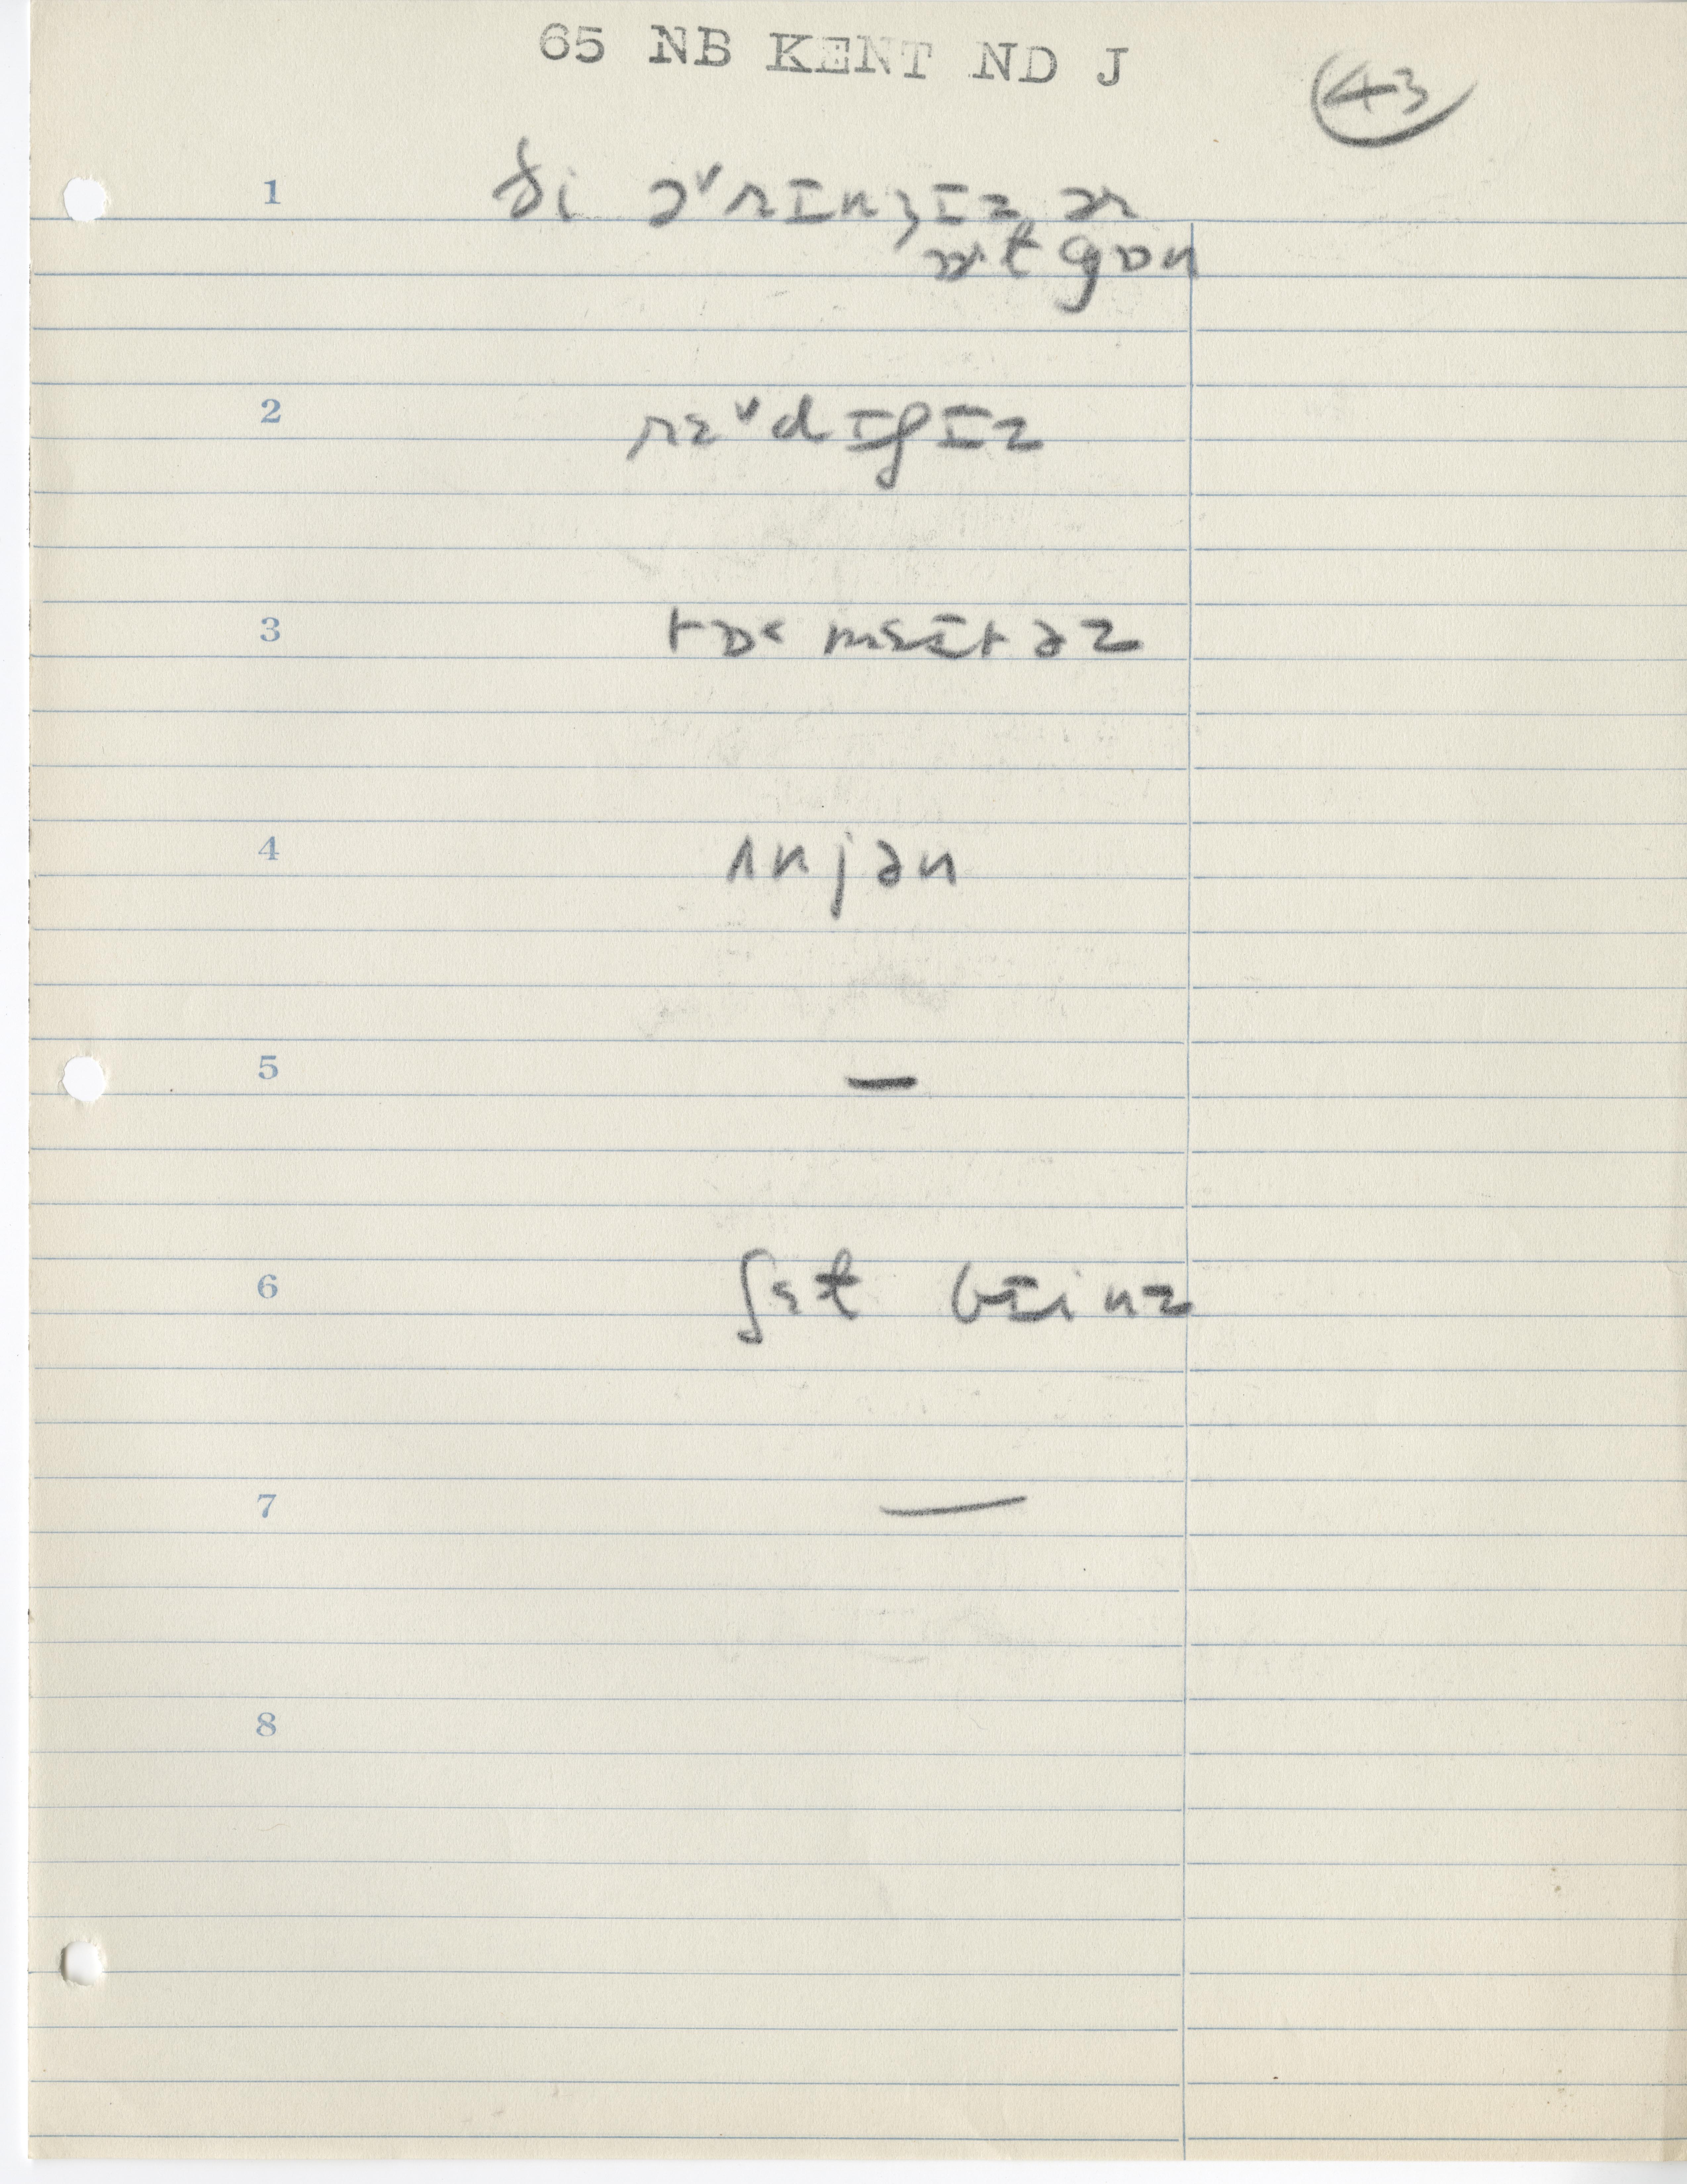 65 NB KENT ND J
43
1 ði ɔ˅rɪnʒɪz ər
ɒ˂t gɒn
2 rɛ˅dɪʃɪz
3 tɒ˂mɛɪtəz
4 ʌnjən
5 —
6 ʃɛt bɪinz
7 —
8